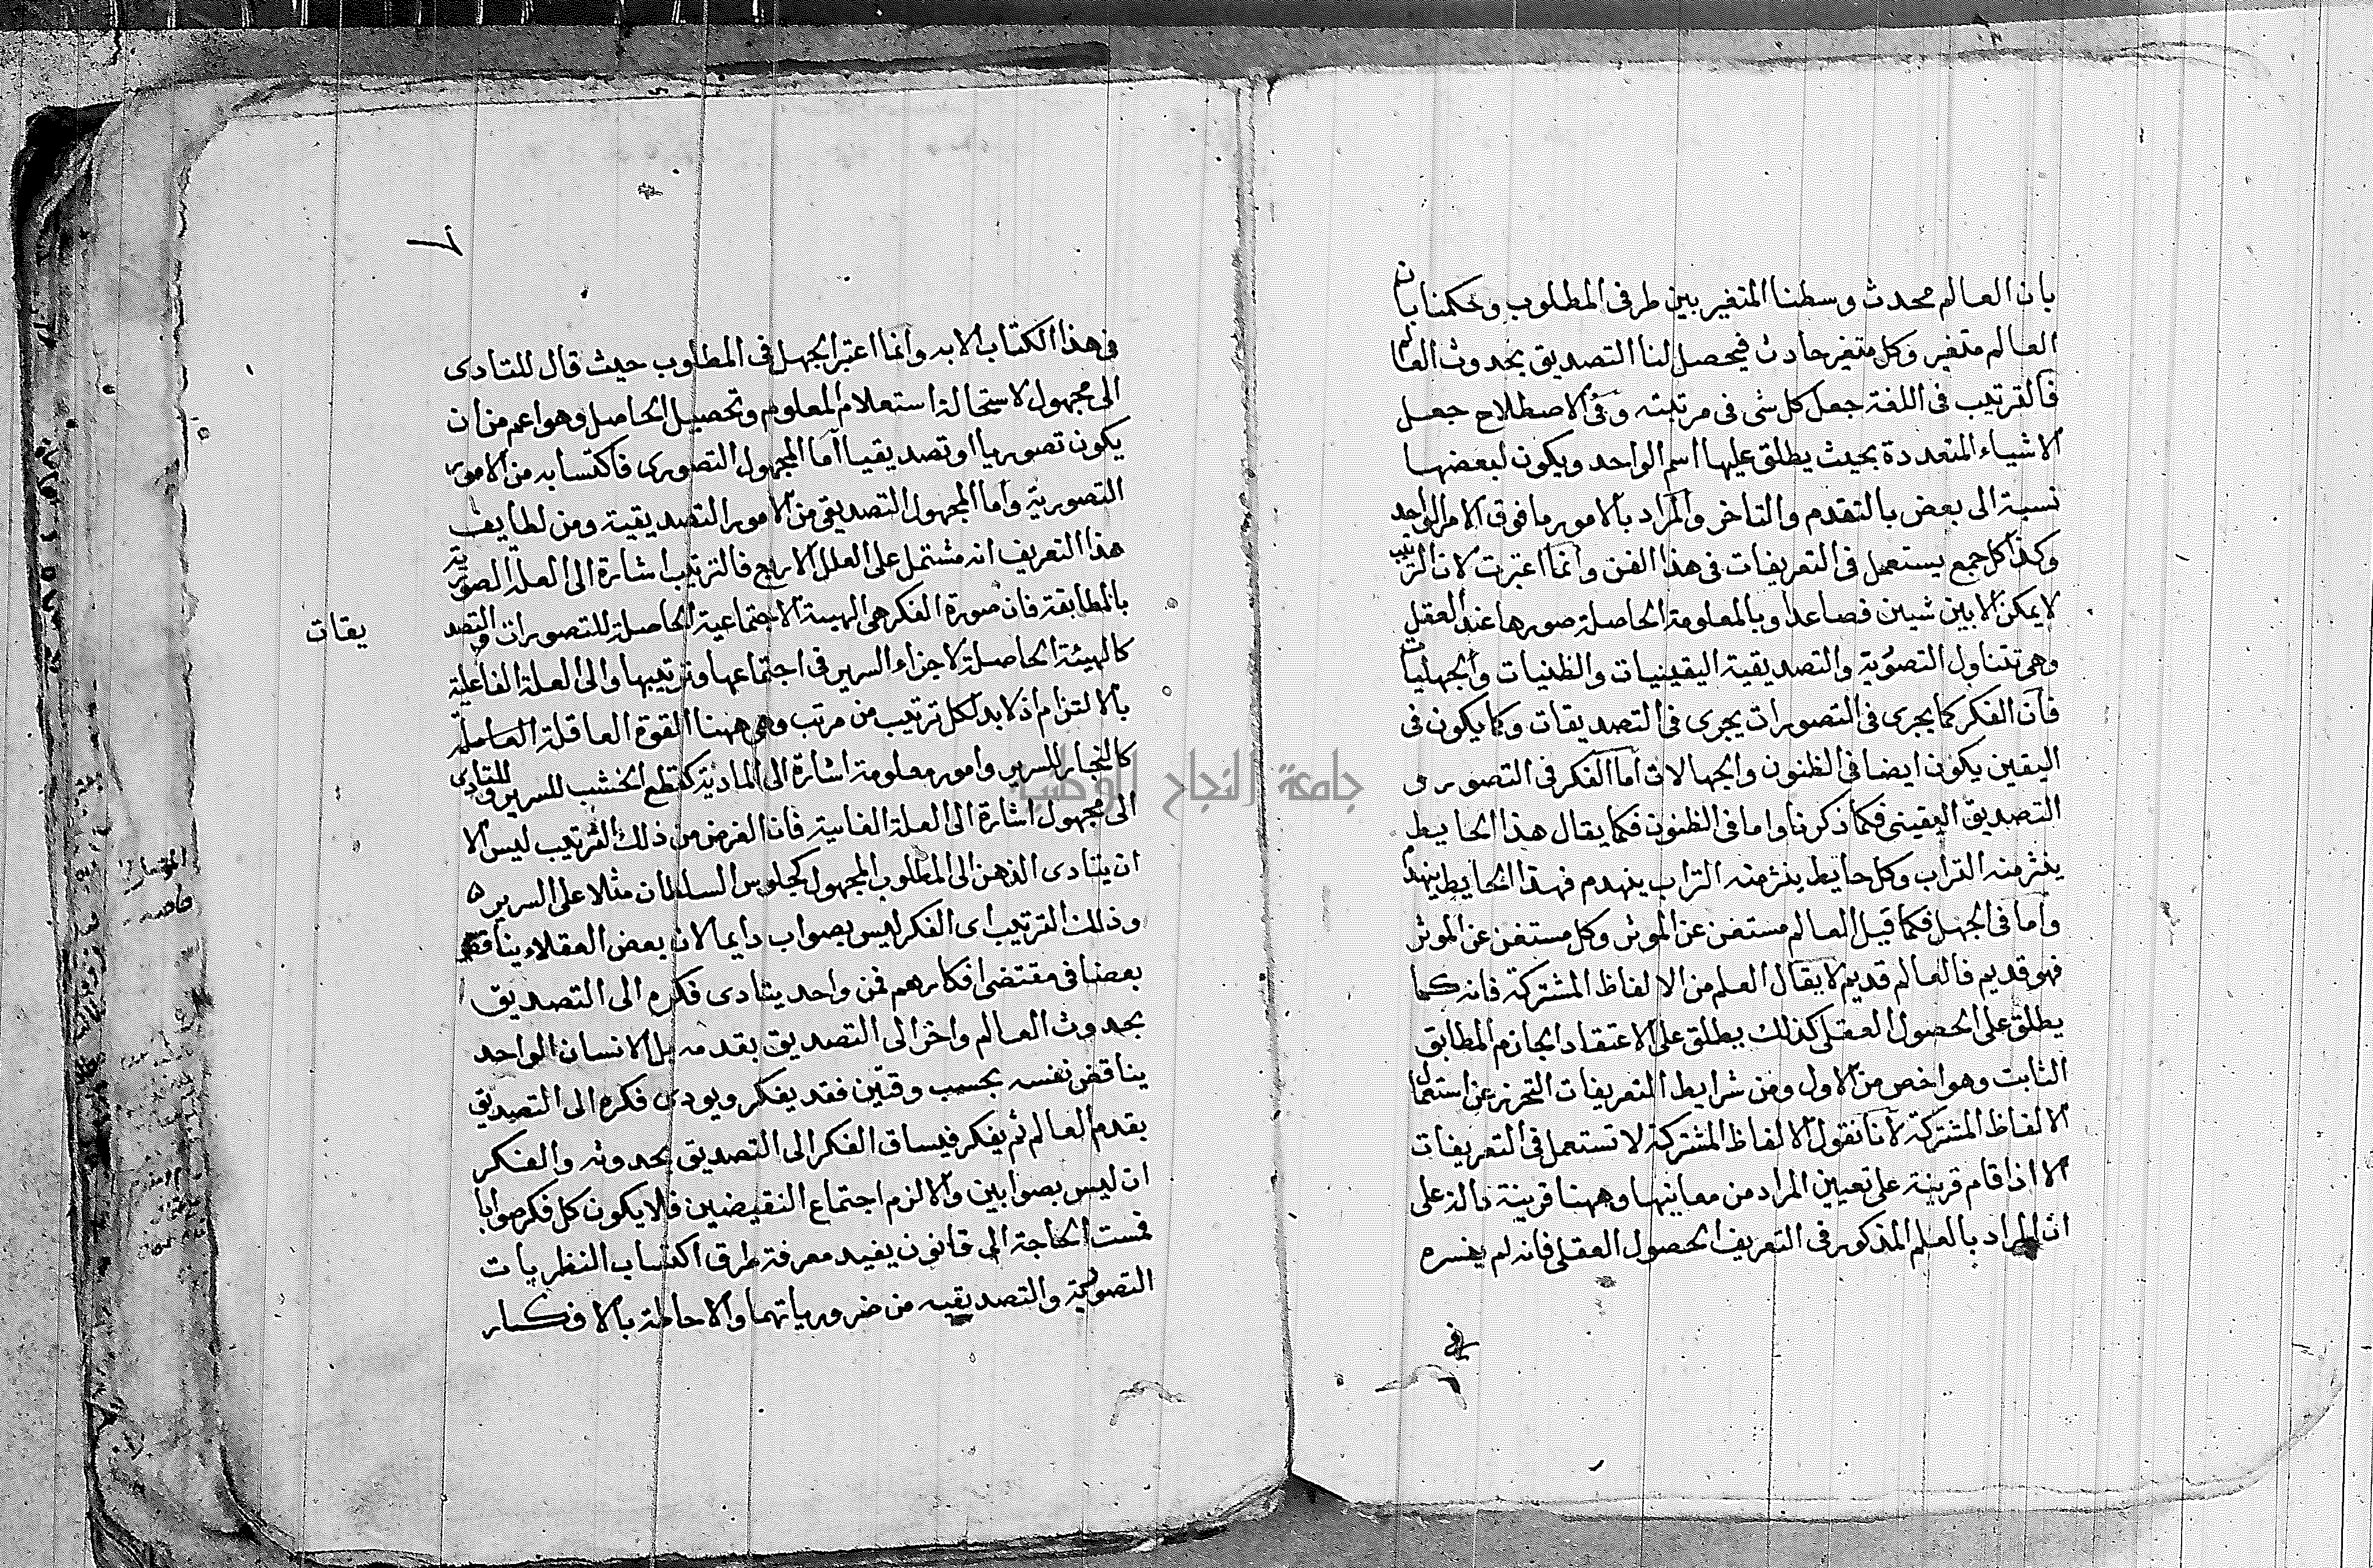 بان العالم محدث وسطنا المتغير بين طرفى المطلوب وحكمنا بان
العالم متغير وكل متغير حادث فيحصل لنا التصديق بحدوث العالم
فالترتيب فى اللغة جعل كل شى فى مرتبته وفى الاصطلاح جعل
الاشياء المتعددة بحيث يطلق عليها اسم الواحد ويكون لبعضها
نسبة الى بعض بالتقدم والتاخر والمراد بالامور ما فوق الامر الواحد
وكذا كل جمع يستعمل فى التعريفات فى هذا الفن وانما اعتبرت لان الترتيب
لا يمكن الا بين شيين فصاعدا وبالمعلومة الحاصلة صورها عند العقل
وهى تتناول التصورية والتصديقية اليقينيات والظنيات والجهليات
فان الفكر كما يجرى فى التصورات يجرى فى التصديقات وكما يكون فى
اليقين يكون ايضا فى الظنون والجهالات اما الفكر فى التصور وى
التصديق اليقينى فكما ذكرنا واما فى الظنون فكما يقال هذا الحايط
ينثر منه التراب وكل حايط ينثر منه التراب ينهدم فهذا الحايط ينهدم
واما فى الجهل فكما قيل العالم مستغن عن الموثر وكل مستغن عن الموثر
فهو قديم فالعالم قديم لا يقال العلم من الالفاظ المشتركة فانه كما
يطلق على الحصول العقلى كذلك يطلق على الاعتقاد الجازم المطابق
الثابت وهو اخص من الاول ومن شرايط التعريفات التحرز عن استعمال
الالفاظ المشتركة لانا نقول الالفاظ المشتركة لا تستعمل فى التعريفات
الا اذا قام قرينة على تعيين المراد من معانيها وههنا قرينة دالة على
ان المراد بالعلم المذكور فى التعريف الحصول العقلى فانه لم يفسره
فى
٧
فى هذا الكتاب الا به وانما اعتبر الجهل فى المطلوب حيث قال للتادى
الى مجهول لاستحالة استعلام المعلوم وتحصيل الحاصل وهو اعم من ان
يكون تصوريا او تصديقيا اما المجهول التصورى فاكتسابه من الامور
التصورية واما المجهول التصديقى من الامور التصديقية ومن لطايف
هذا التعريف انه مشتمل على العلل الاربع فالترتيب اشارة الى العلة الصورية
بالمطابقة فان صورة الفكر هى الهيئة الاجتماعية الحاصلة للتصورات والتصد
يقات
كالهيئة الحاصلة لاجزاء السرير فى اجتماعها وترتيبها والى العلة الفاعلية
بالالتزام اذ لا بد لكل ترتيب من مرتب وهى ههنا القوة العاقلة
كالنجار للسرير وامور معلومة اشارة الى المادية كقطع الخشب للسرير وللتادى
الى مجهول اشارة الى العلة الغايية فان الغرض من ذلك الترتيب ليس الا
ان يتادى الذهن الى المطلوب المجهول كجلوس السلطان مثلا على السرير
وذلك الترتيب اى الفكر ليس بصواب دايما لان بعض العقلاء يناقض
بعضا فى مقتضى افكارهم فمن واحد يتادى فكره الى التصديق
بحدوث العالم واخر الى التصديق بقدمه بل الانسان الواحد
يناقض نفسه بحسب وقتين فقد يفكر ويودى فكره الى التصديق
بقدم العالم ثم يفكر فيساق الفكر الى التصديق بحدوثه والفكر
ان ليس بصوابين والا لزم اجتماع النقيضين فلا يكون كل فكر صوابا
فمست الحاجة الى قانون يفيد معرفة طرق اكتساب النظريات
التصورية والتصديقيه من ضرورياتهما والاحاطة بالافكار
جامعة النجاح الوطنية